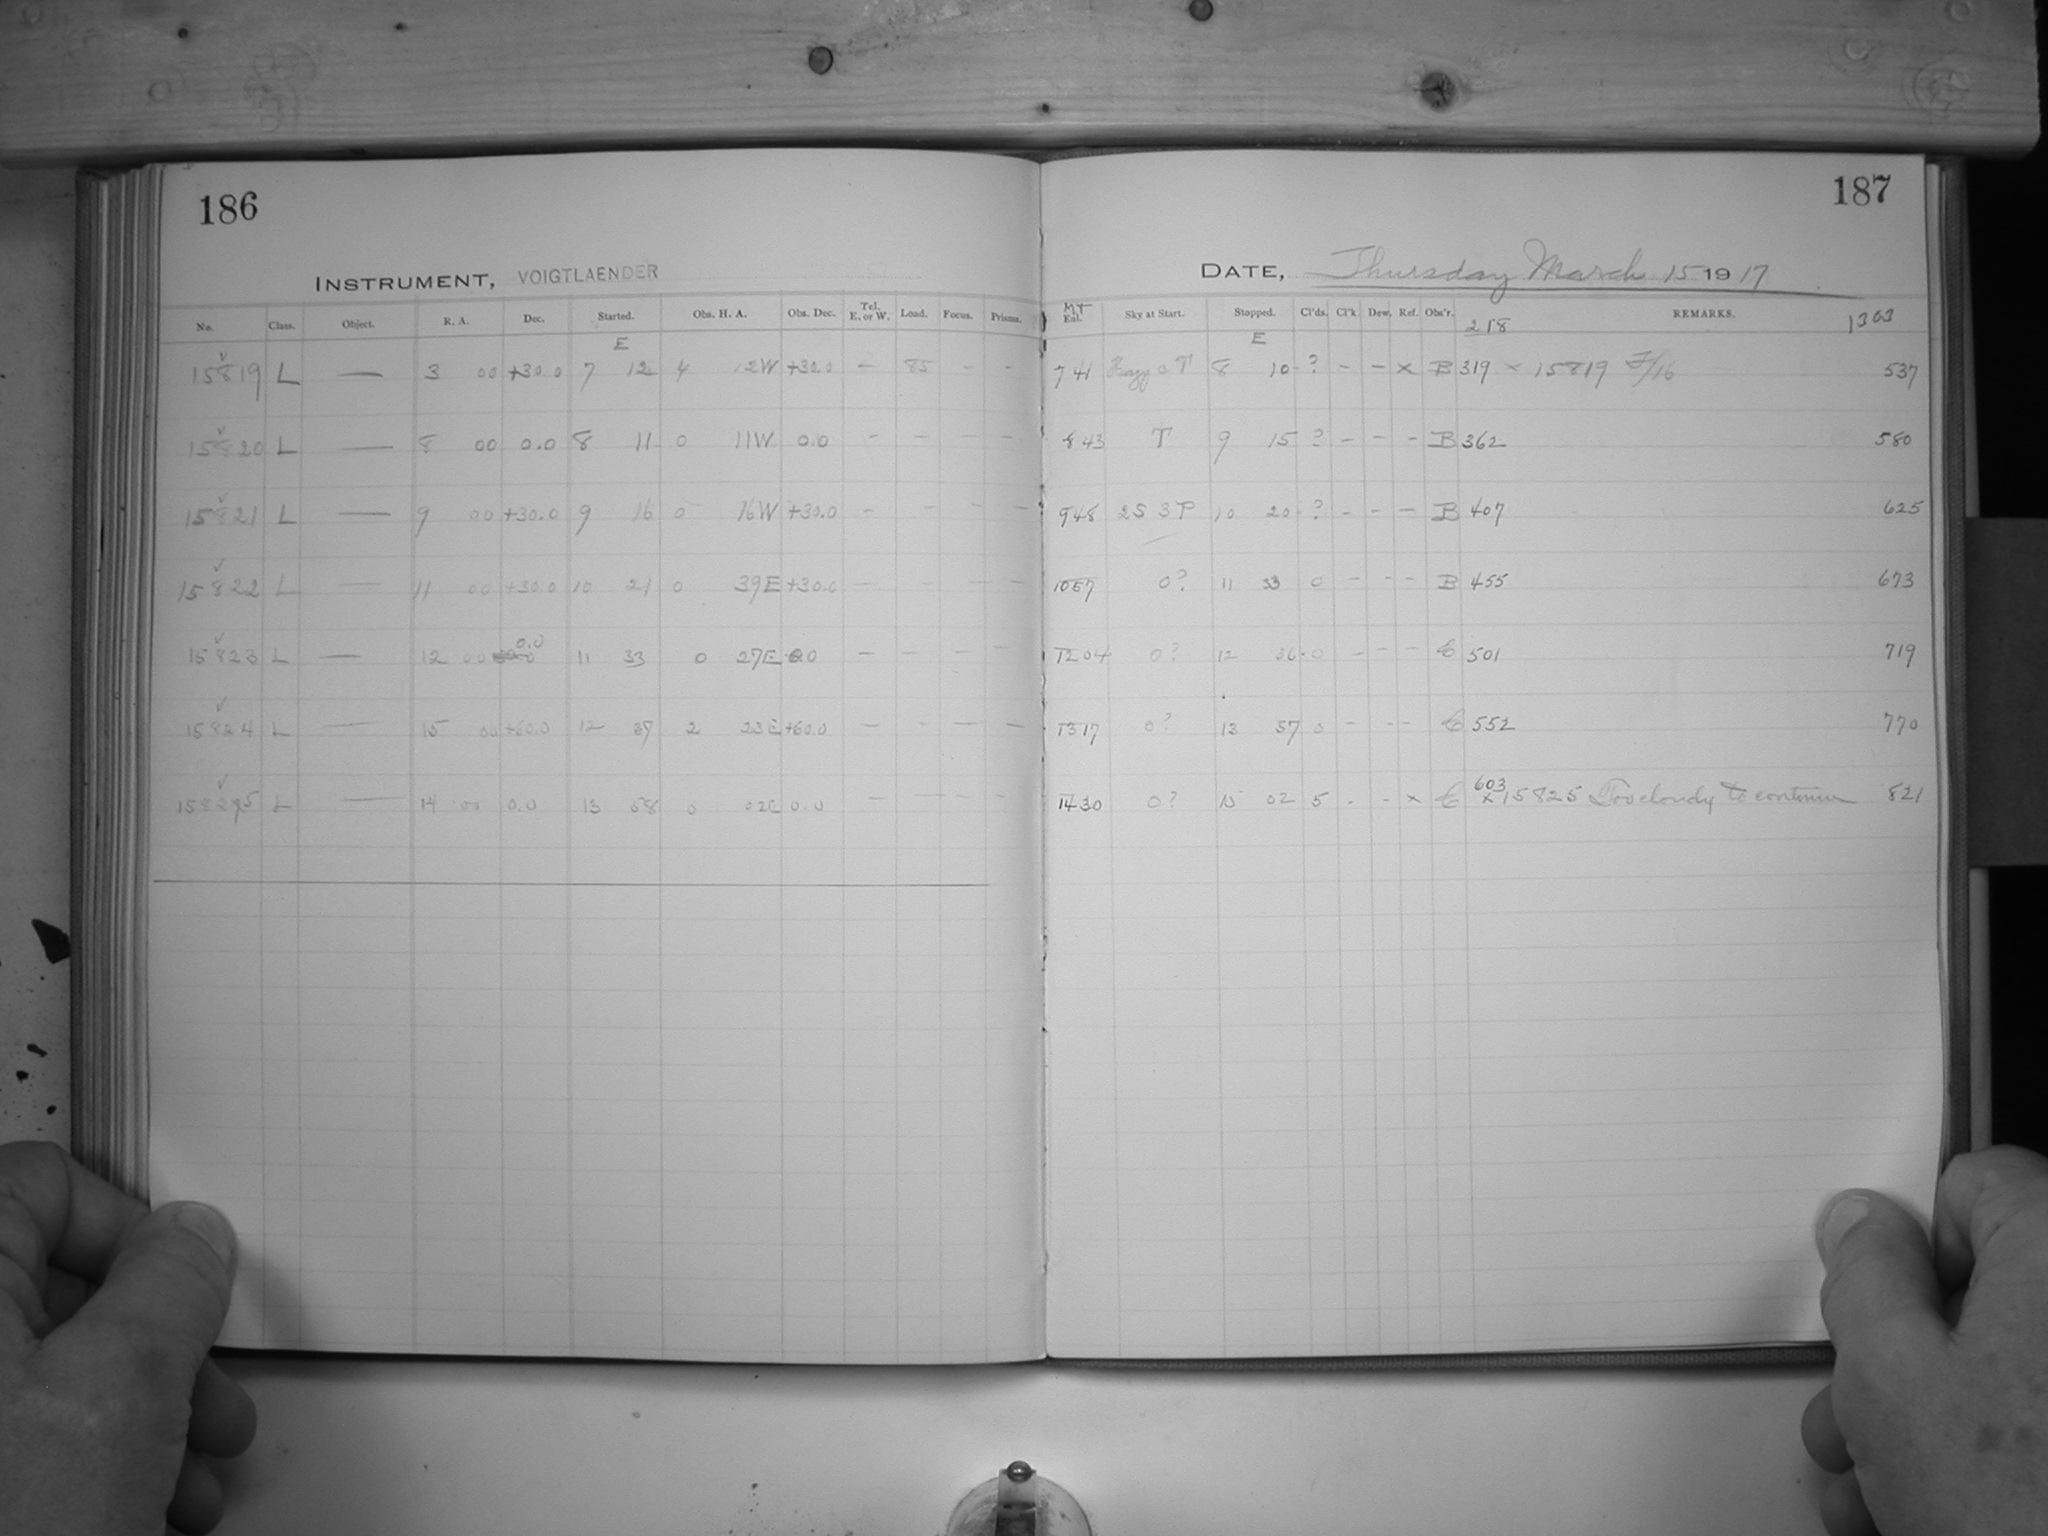 186
INSTRUMENT, VOIGTLAENDER
No. Class. Object. R. A. Dec. Started. Obs. H. A. Obs. Dec. Tel. E. or W. Load. Focus. Prisms.
E
15819 L — 3 00 +30.0 7 12 4 12W +30.0 — 85 - -
15820 L — 8 00 0.0 8 11 0 11W 0.0 - - - -
15821 L — 9 00 +30.0 9 16 0 16W +30.0 - - - -
15822 L — 11 00 +30.0 10 21 0 39E +30.0 - - - -
15823 L — 12 00 0.0 11 33 0 27E 0.0 - - - -
15824 L — 15 00 +60.0 12 37 2 23E +60.0 — - — -
15825 L — 14 00 0.0 13 58 0 02E 0.0 - - - -
187
DATE, Thursday March 15 1917
MT
Sky at Start. Stopped. Cl'ds. Cl'k Dew. Ref. Obs'r. REMARKS.
E 218 1303
7 41 Hazy T 8 10 ? - - x B 319 x 15819 F/16 537
8 43 T 9 15 ? - - - B 362 580
9 48 2S 3P 10 20 ? - - - B 407 625
10 57 0? 11 33 0 - - - B 455 673
12 04 0? 12 36 0 - - - C 501 719
13 17 0? 13 57 0 - - - C 552 770
14 30 0? 15 02 5 - - x C 603 x 15825 Too cloudy to continue 821